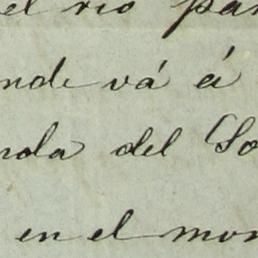 el rio par
nde vá á
nda del So
en el mon